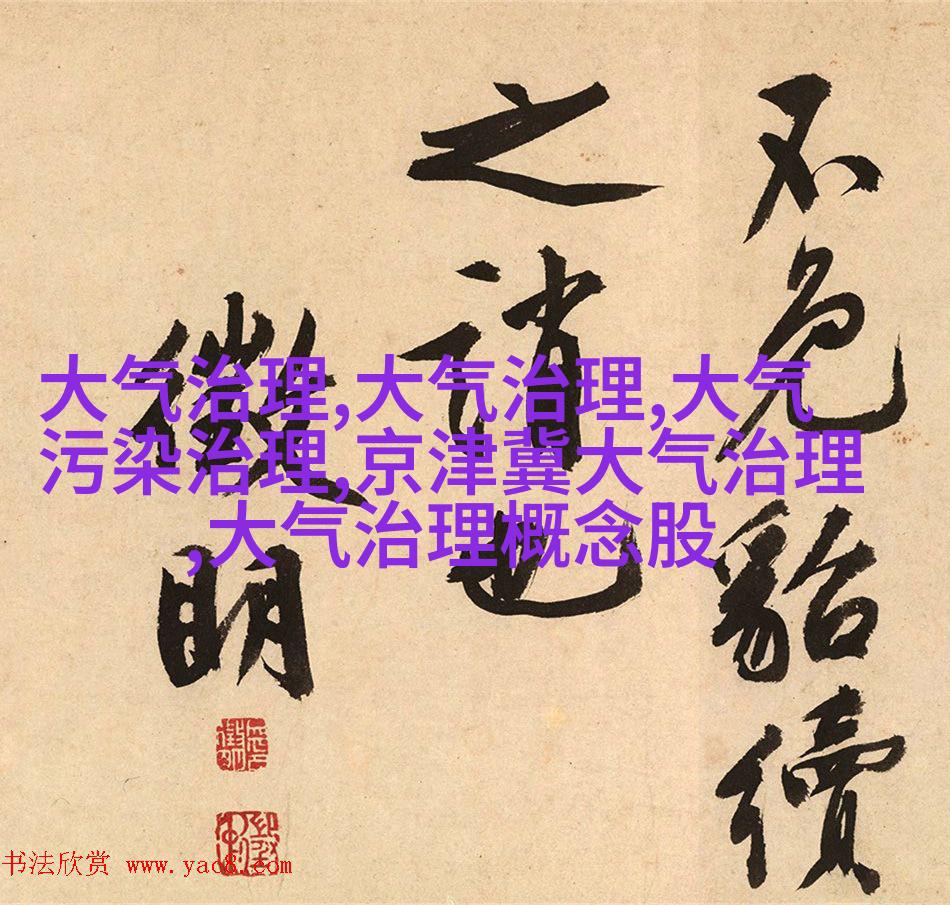 不免貂續
之誚也
徵明
大气治理,大气治理,大气
污染治理,京津冀大气治理
,大气治理概念股
书法欣赏 www.yac8.com